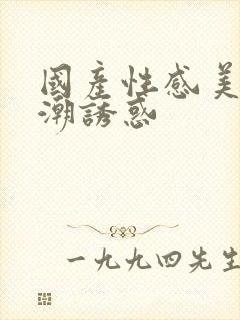 國產性感美
潮誘惑
一九九四先生